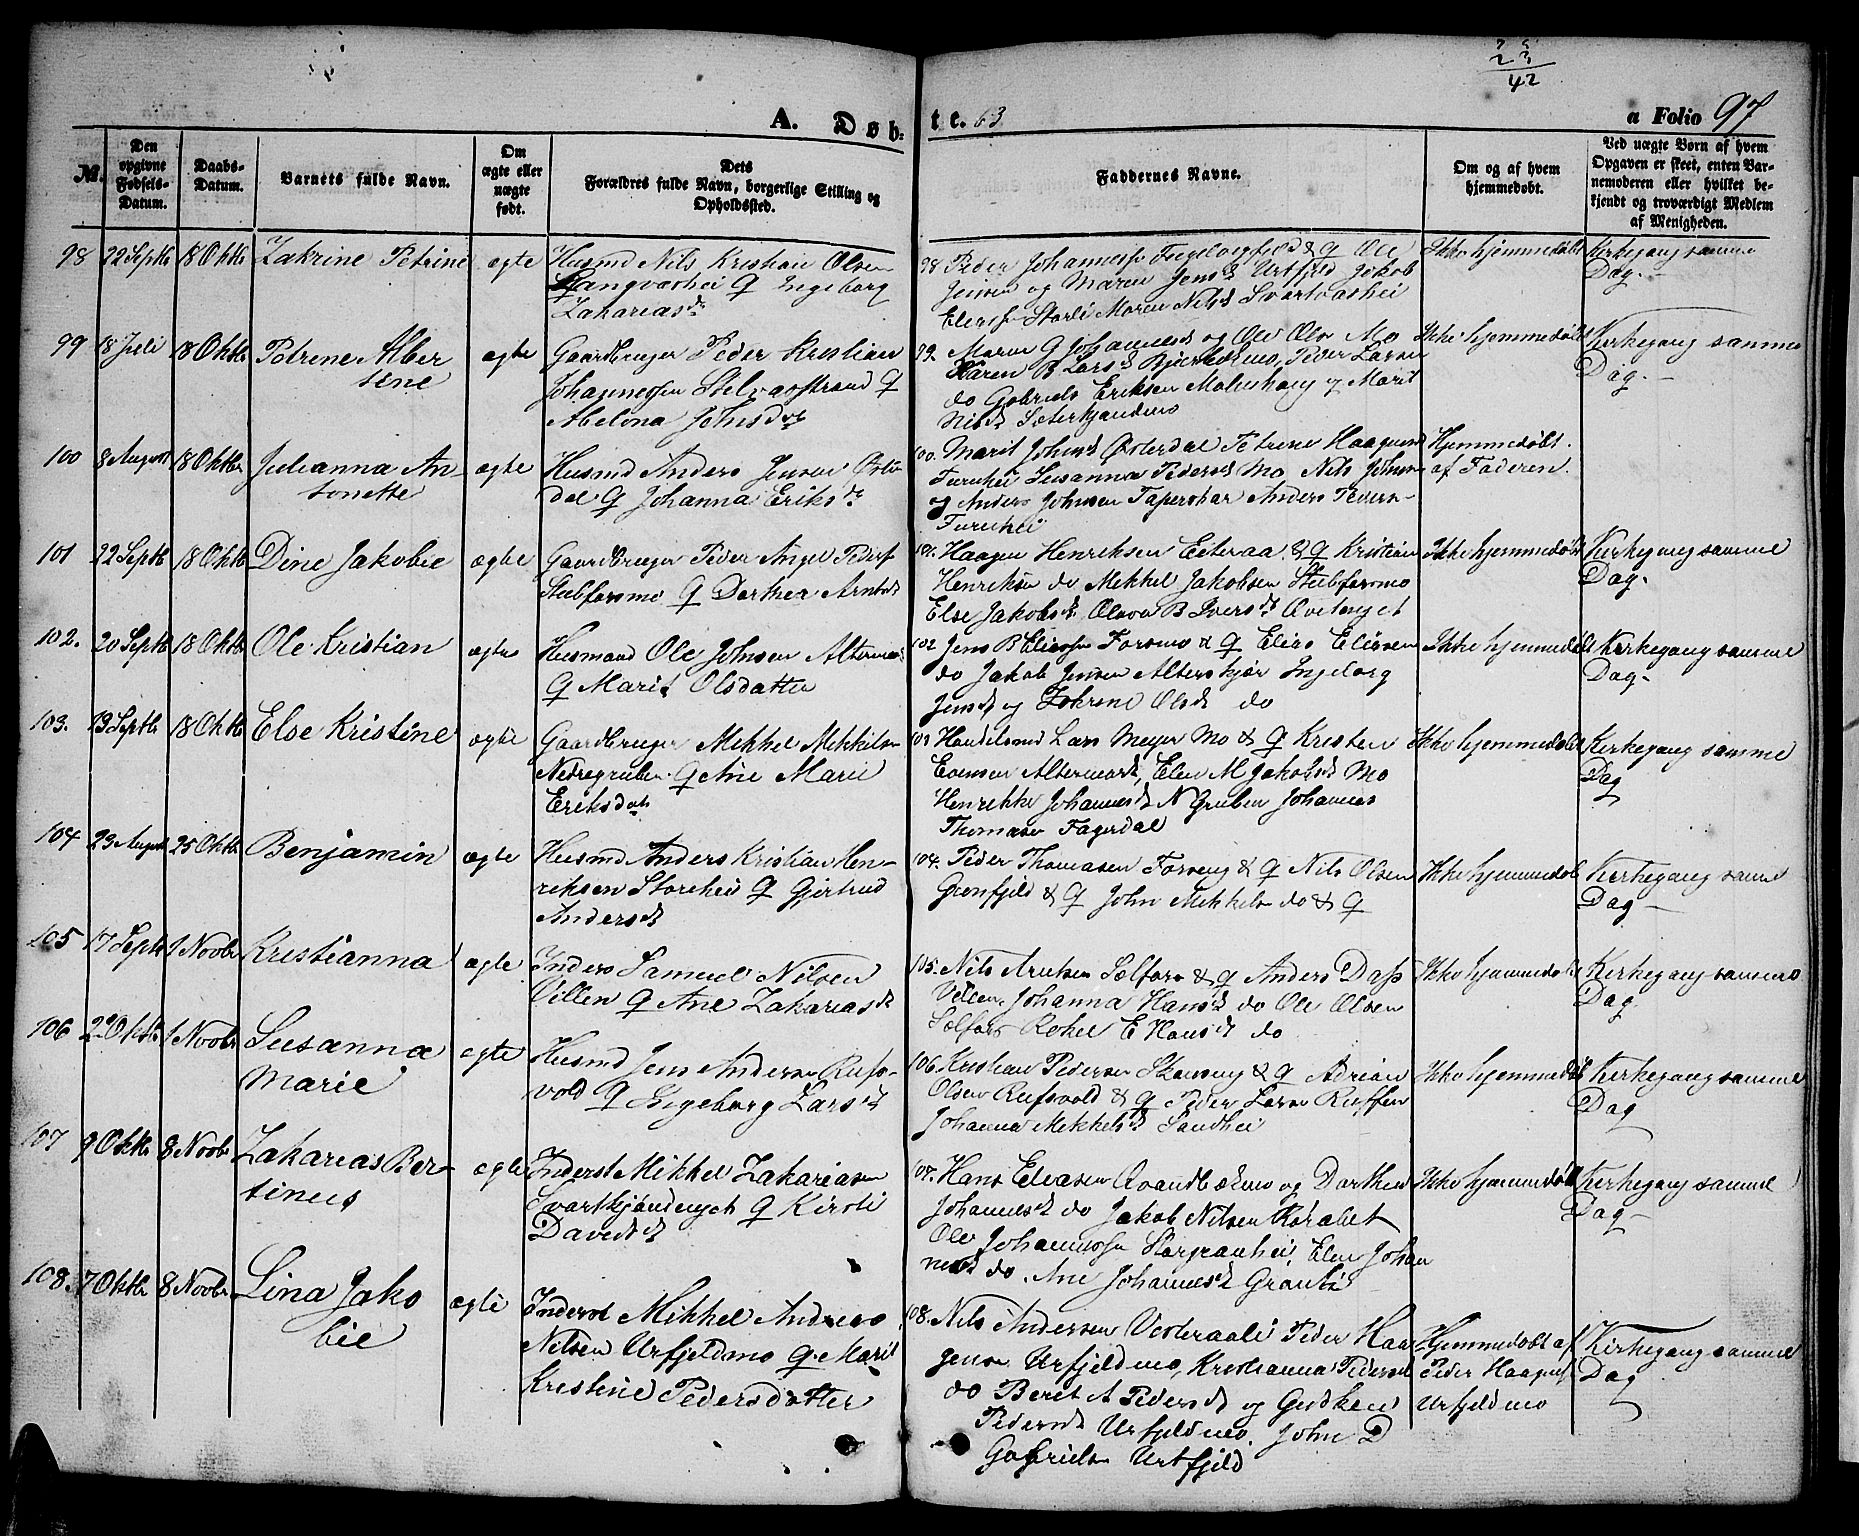 23
42
A. Døbte. 63
a Folio 97
№.
Den opgivne Fødsels-Datum.
Daabs-Datum.
Barnets fulde Navn.
Om ægte eller uægte født.
Dets Forældres fulde Navn, borgerlige Stilling og Opholdssted.
Faddernes Navne.
Om og af hvem hjemmedøbt.
Ved uægte Børn af hvem Opgaven er skeet, enten Barnemoderen eller hvilket bekjendt og troværdigt Medlem af Menigheden.
98 22 Septbr 18 Oktbr Zakrine Petrine ægte Husmd Nils Kristian Olsen
Langvashei & Ingeborg
Zakariasdr
98 Peder Johannessen & Q Ole
Jensen og Maren Jensd Urtfjeld Jakob
Eliassen Storli Maren Nilsd Svartvashei
Ikke hjemmedøbt
Kirkegang samme
Dag.
99 18 Juli 18 Oktbr Petrine Alber
tine
ægte Gaardbruger Peder Kristian
Johannessen Stilvasstrand Q
Abelona Johnsdtr
99. Maren G Johannesd og Ole Ols Mo
Karen B Larsd Bjerkåsmo, Peder Larsen
do Gabriel Eriksen Molushaug og Marit
Nilsd Sæterkjandmo
Ikke hjemmedøbt
Kirkegang samme
Dag.
100 8 August 18 Oktbr Julianna An-
tonette
ægte Husmd Anders Jensen Øster
dal Q Johanna Eriksdr
100. Marit Johnsd Østerdal Petrine Haagensd
Furuhei Susanna Pedersd Mo Nils Johnsen
og Anders Johnsen Taperskar Anders Peders-
Furuhei
Hjemmedøbt
af Faderen.
101 22 Septbr 18 Oktbr Dine Jakobie ægte Gaardbruger Peder Angel Peders
Stubforsmo Q Dorthea Arntsd
101. Haagen Henriksen Eiteraa & Q Kristian
Henriksen do Mekkel Jakobsen Stubforsmo
Else Jakobsd Olava B Iversd Øvernyet
Ikke hjemmedøbt
Kirkegang samme
Dag.
102. 20 Septbr 18 Oktbr Ole Kristian ægte Husmand Ole Johnsen Altermo
Q Marit Olsdatter
102 Jens B Eliassen Forsmo & Q Elias Eliassen
do Jakob Jensen Alterskjær Ingeborg
Jensd og Zakrine Olsd do
Ikke hjemmedøbt
Kirkegang samme
Dag
103. 13 Septbr 18 Oktbr Else Kristine ægte Gaardbruger Mekkel Mekkelsen
Nedregruben Q Ane Marie
Eriksdatr
103 Handelsmd Lars Meyer Mo & Q Kristen
Evensen Altermark, Elen M Jakobsd Mo
Henrikke Johannesd N Gruben Johannes
Thomasen Fagerdal
Ikke hjemmedøbt
Kirkegang samme
Dag
104 23 August 25 Oktbr Benjamin ægte Husmd Anders Kristian Hen-
riksen Storehei Q Gjertrud
Andersd
104. Peder Thomasen Forseng & Q Nils Olsen
Grønfjeld & Q John Mekkelsen do & Q
Ikke hjemmedøbt
Kirkegang samme
Dag
105 17 Septbr 1 Novbr Kristianna ægte Inders Samuel Nilsen
Villen Q Ane Zakariasd
105. Nils Arntsen Sælfors & Q Anders Dass
Villen, Johanna Hansd do Ole Olsen
Sælfors Rakel E Hansd do
Ikke hjemmedøbt
Kirkegang samme
Dag
106 22 Oktbr 1 Novbr Susanna
Marie
ægte Husmd Jens Andersen Rufs-
vold Q Ingeborg Larsd
106. Kristian Pedersen Skonseng & Q Adrian
Olsen Rufsvold & Q Peder Larsen Ruffen
Johanna Mekkelsd Sandhei
Ikke hjemmedøbt
Kirkegang samme
Dag
107 9 Oktbr 8 Novbr Zakarias Ber-
tineus
ægte Inderst Mikkel Zakariasen
Svartkjøndnyet Q Kirsti
Davidsd
107. Hans Eliasen Avandbækmo og Dorthea
Johannesd do Jakob Nilsen Rørabet
Ole Johannessen Storgranhei, Elen Johan
nesd do. Ane Johannesd Granli
Ikke hjemmedøbt
Kirkegang samme
Dag
108. 7 Oktbr 8 Novbr Lina Jako
bie
ægte Inderst Mikkel Andreas
Nilsen Urfjeldmo Q Marit
Kristine Pedersdatter
108. Nils Andersen Vesteraali Peder Haa
gensen Urfjeldmo, Kristianna Pedersd
do Beret A Pedersd og Gudken
Pedersd Urfjeldmo. John D
Gabrielsen Urtfjeld
Hjemmedøbt af
Peder Haagens
Urfjeldmo
Kirkegang samme
Dag